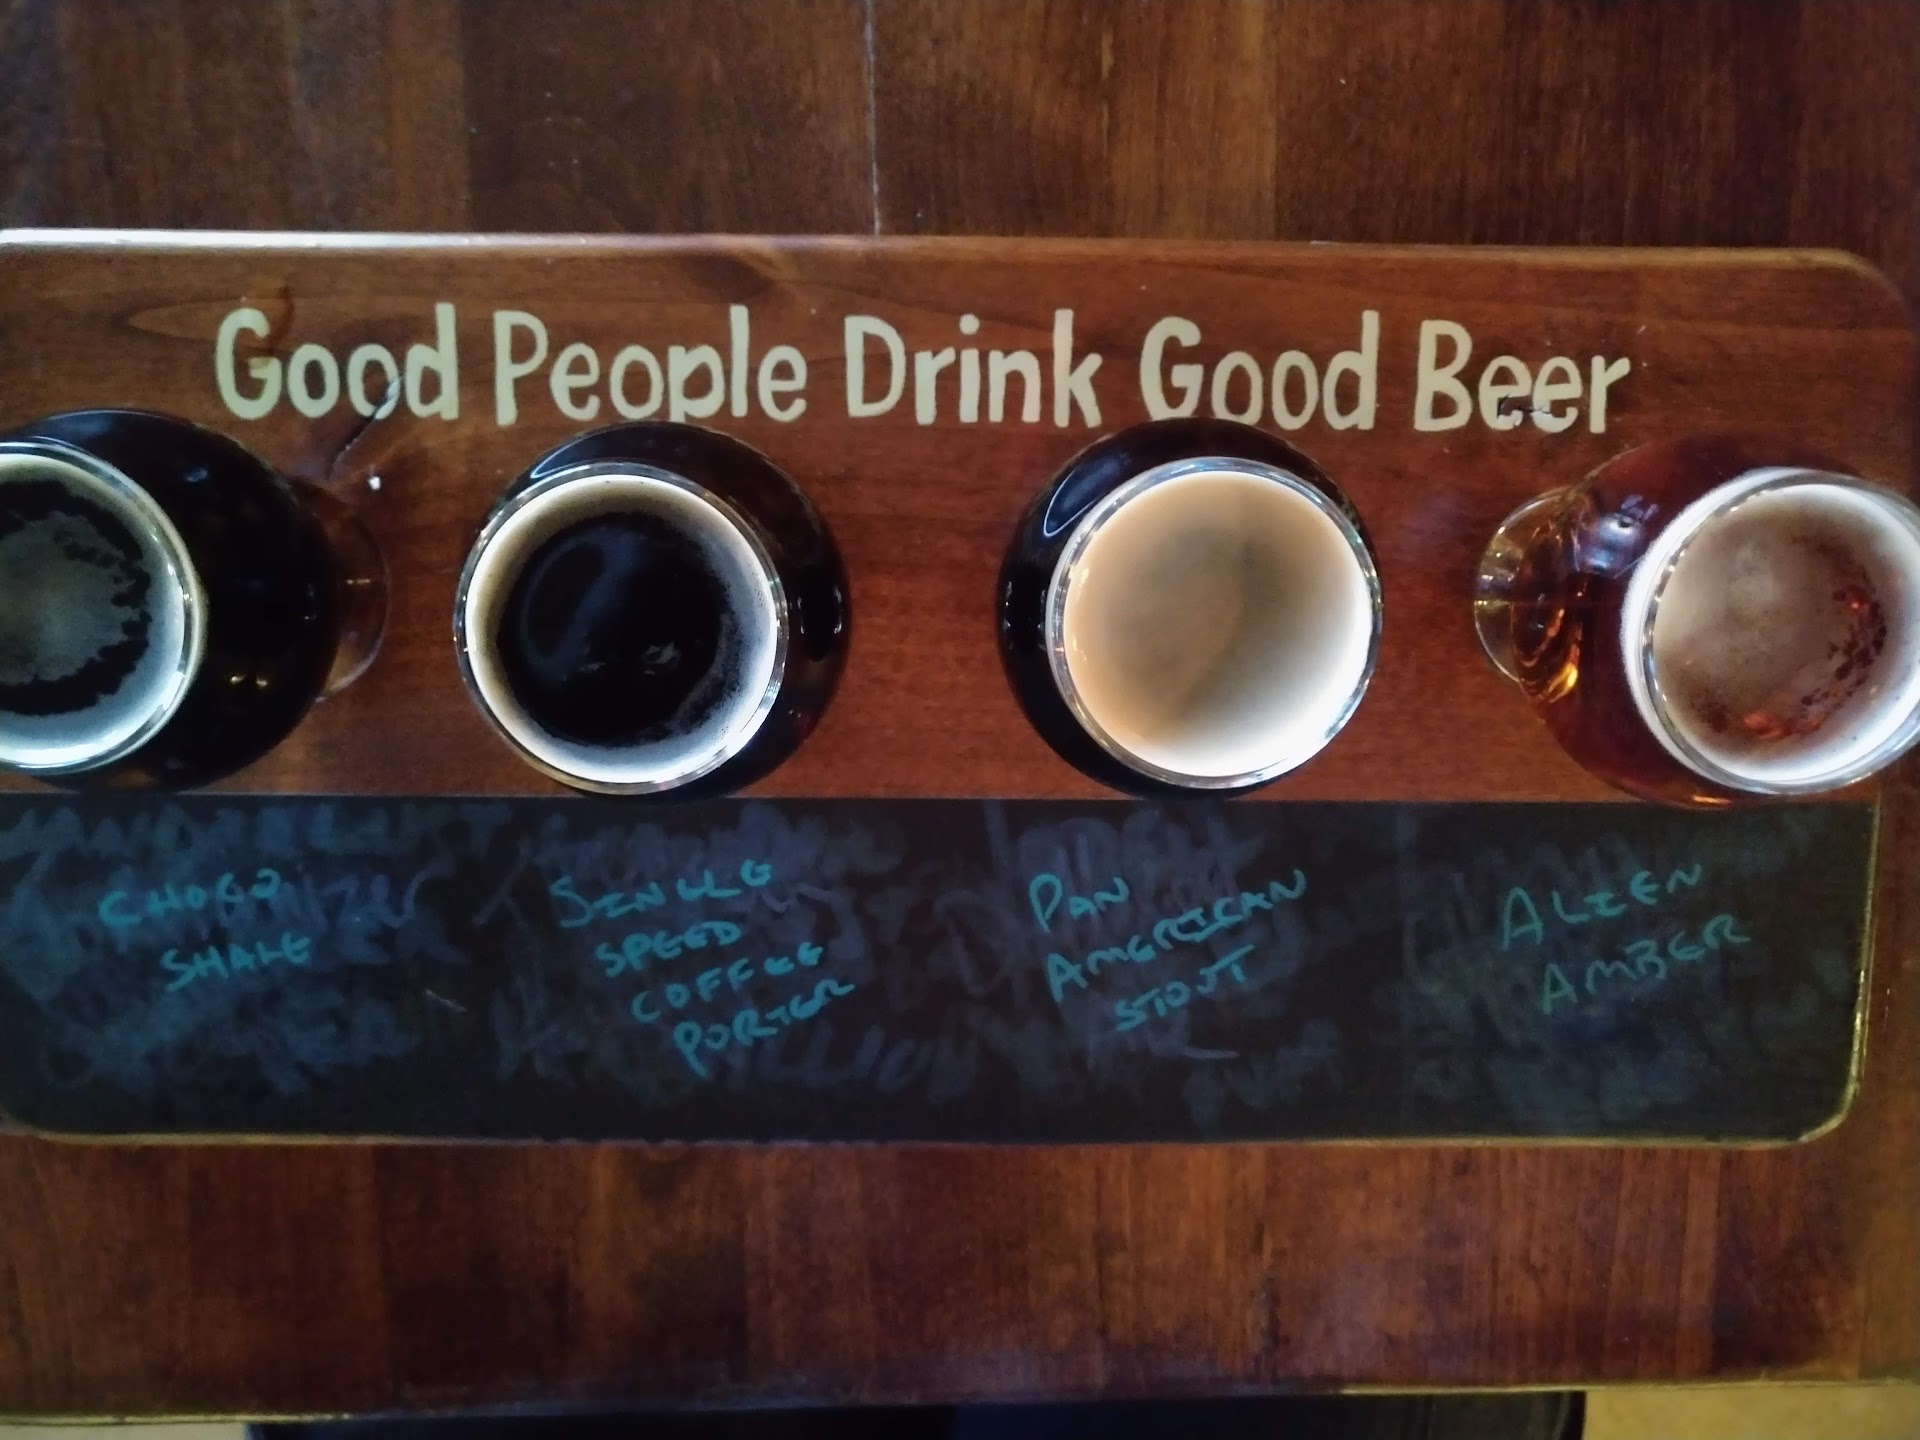 Good People Drink Good Beer
CHOCO
SHAKE
SINGLE
SPEED
COFFEE
PORTER
PAN
AMERICAN
STOUT
ALIEN
AMBER